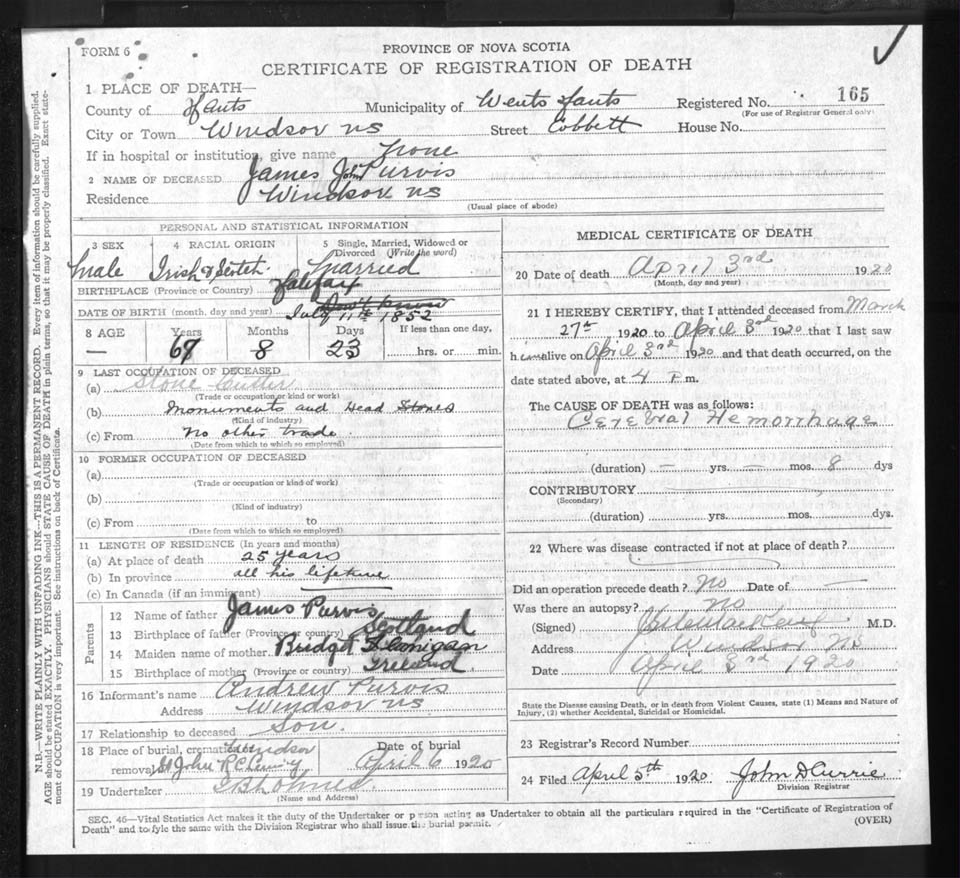 FORM 6
PROVINCE OF NOVA SCOTIA
CERTIFICATE OF REGISTRATION OF DEATH
1 PLACE OF DEATH—
County of Hants Municipality of West Hants Registered No. 165
(For use of Registrar General only)
City or Town Windsor NS Street Cobbett House No.
If in hospital or institution, give name None
2 NAME OF DECEASED James John Purvis
Residence Windsor NS
(Usual place of abode)
PERSONAL AND STATISTICAL INFORMATION
3 SEX 4 RACIAL ORIGIN 5 Single, Married, Widowed or Divorced (Write the word)
Male Irish & Scotch Married
BIRTHPLACE (Province or Country) Halifax
Don't know
DATE OF BIRTH (month, day and year) July 11th 1852
8 AGE Years Months Days If less than one day,
— 67 8 23 hrs. or min.
9 LAST OCCUPATION OF DECEASED
(a) Stone Cutter
(Trade or occupation or kind or work)
(b) Monuments and Head Stones
(Kind of industry)
(c) From no other trade
(Date from which to which so employed)
10 FORMER OCCUPATION OF DECEASED
(a)
(Trade or occupation or kind of work)
(b)
(Kind of industry)
(c) From to
(Date from which to which so employed)
11 LENGTH OF RESIDENCE (In years and months)
(a) At place of death 25 years
(b) In province all his lifetime
(c) In Canada (if an immigrant)
Parents
12 Name of father James Purvis
13 Birthplace of father (Province or country) Scotland
14 Maiden name of mother Bridget Flannigan
15 Birthplace of mother (Province or country) Ireland
16 Informant's name Andrew Purvis
Address Windsor NS
17 Relationship to deceased Son
18 Place of burial, cremation Windsor Date of burial
removal St John R C Cem'y April 6 1920
19 Undertaker
(Name and Address)
MEDICAL CERTIFICATE OF DEATH
20 Date of death April 3rd 1920
(Month, day and year)
21 I HEREBY CERTIFY, that I attended deceased from March
27th 1920 to April 3rd 1920 that I last saw
him alive on April 3rd 1920 and that death occurred, on the
date stated above, at 4 P m.
The CAUSE OF DEATH was as follows:
Cerebral Hemorrhage
(duration) — yrs. — mos. 8 dys
CONTRIBUTORY
(Secondary)
(duration) yrs. mos. dys.
22 Where was disease contracted if not at place of death?
Did an operation precede death? No Date of —
Was there an autopsy? no
(Signed) M.D.
Address Windsor NS
Date April 3rd 1920
State the Disease causing Death, or in death from Violent Causes, state (1) Means and Nature of
Injury, (2) whether Accidental, Suicidal or Homicidal.
23 Registrar's Record Number
24 Filed April 5th 1920 John D Currie
Division Registrar
SEC. 46—Vital Statistics Act makes it the duty of the Undertaker or person acting as Undertaker to obtain all the particulars required in the "Certificate of Registration of
Death" and to fyle the same with the Division Registrar who shall issue the burial permit.
(OVER)
N.B.—WRITE PLAINLY WITH UNFADING INK—THIS IS A PERMANENT RECORD. Every item of information should be carefully supplied.
AGE should be stated EXACTLY. PHYSICIANS should STATE CAUSE OF DEATH in plain terms, so that it may be properly classified. Exact state-
ment of OCCUPATION is very important. See instructions on back of Certificate.